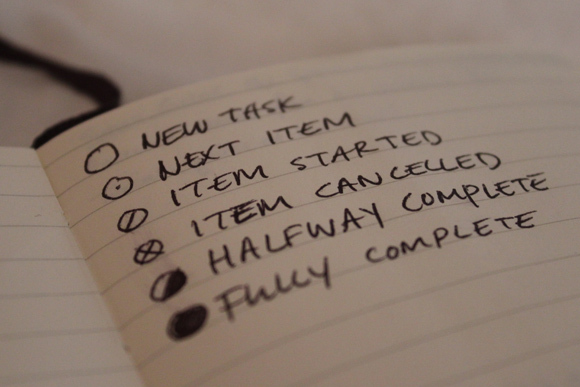 NEW TASK
NEXT ITEM
ITEM STARTED
ITEM CANCELLED
HALFWAY COMPLETE
FULLY COMPLETE